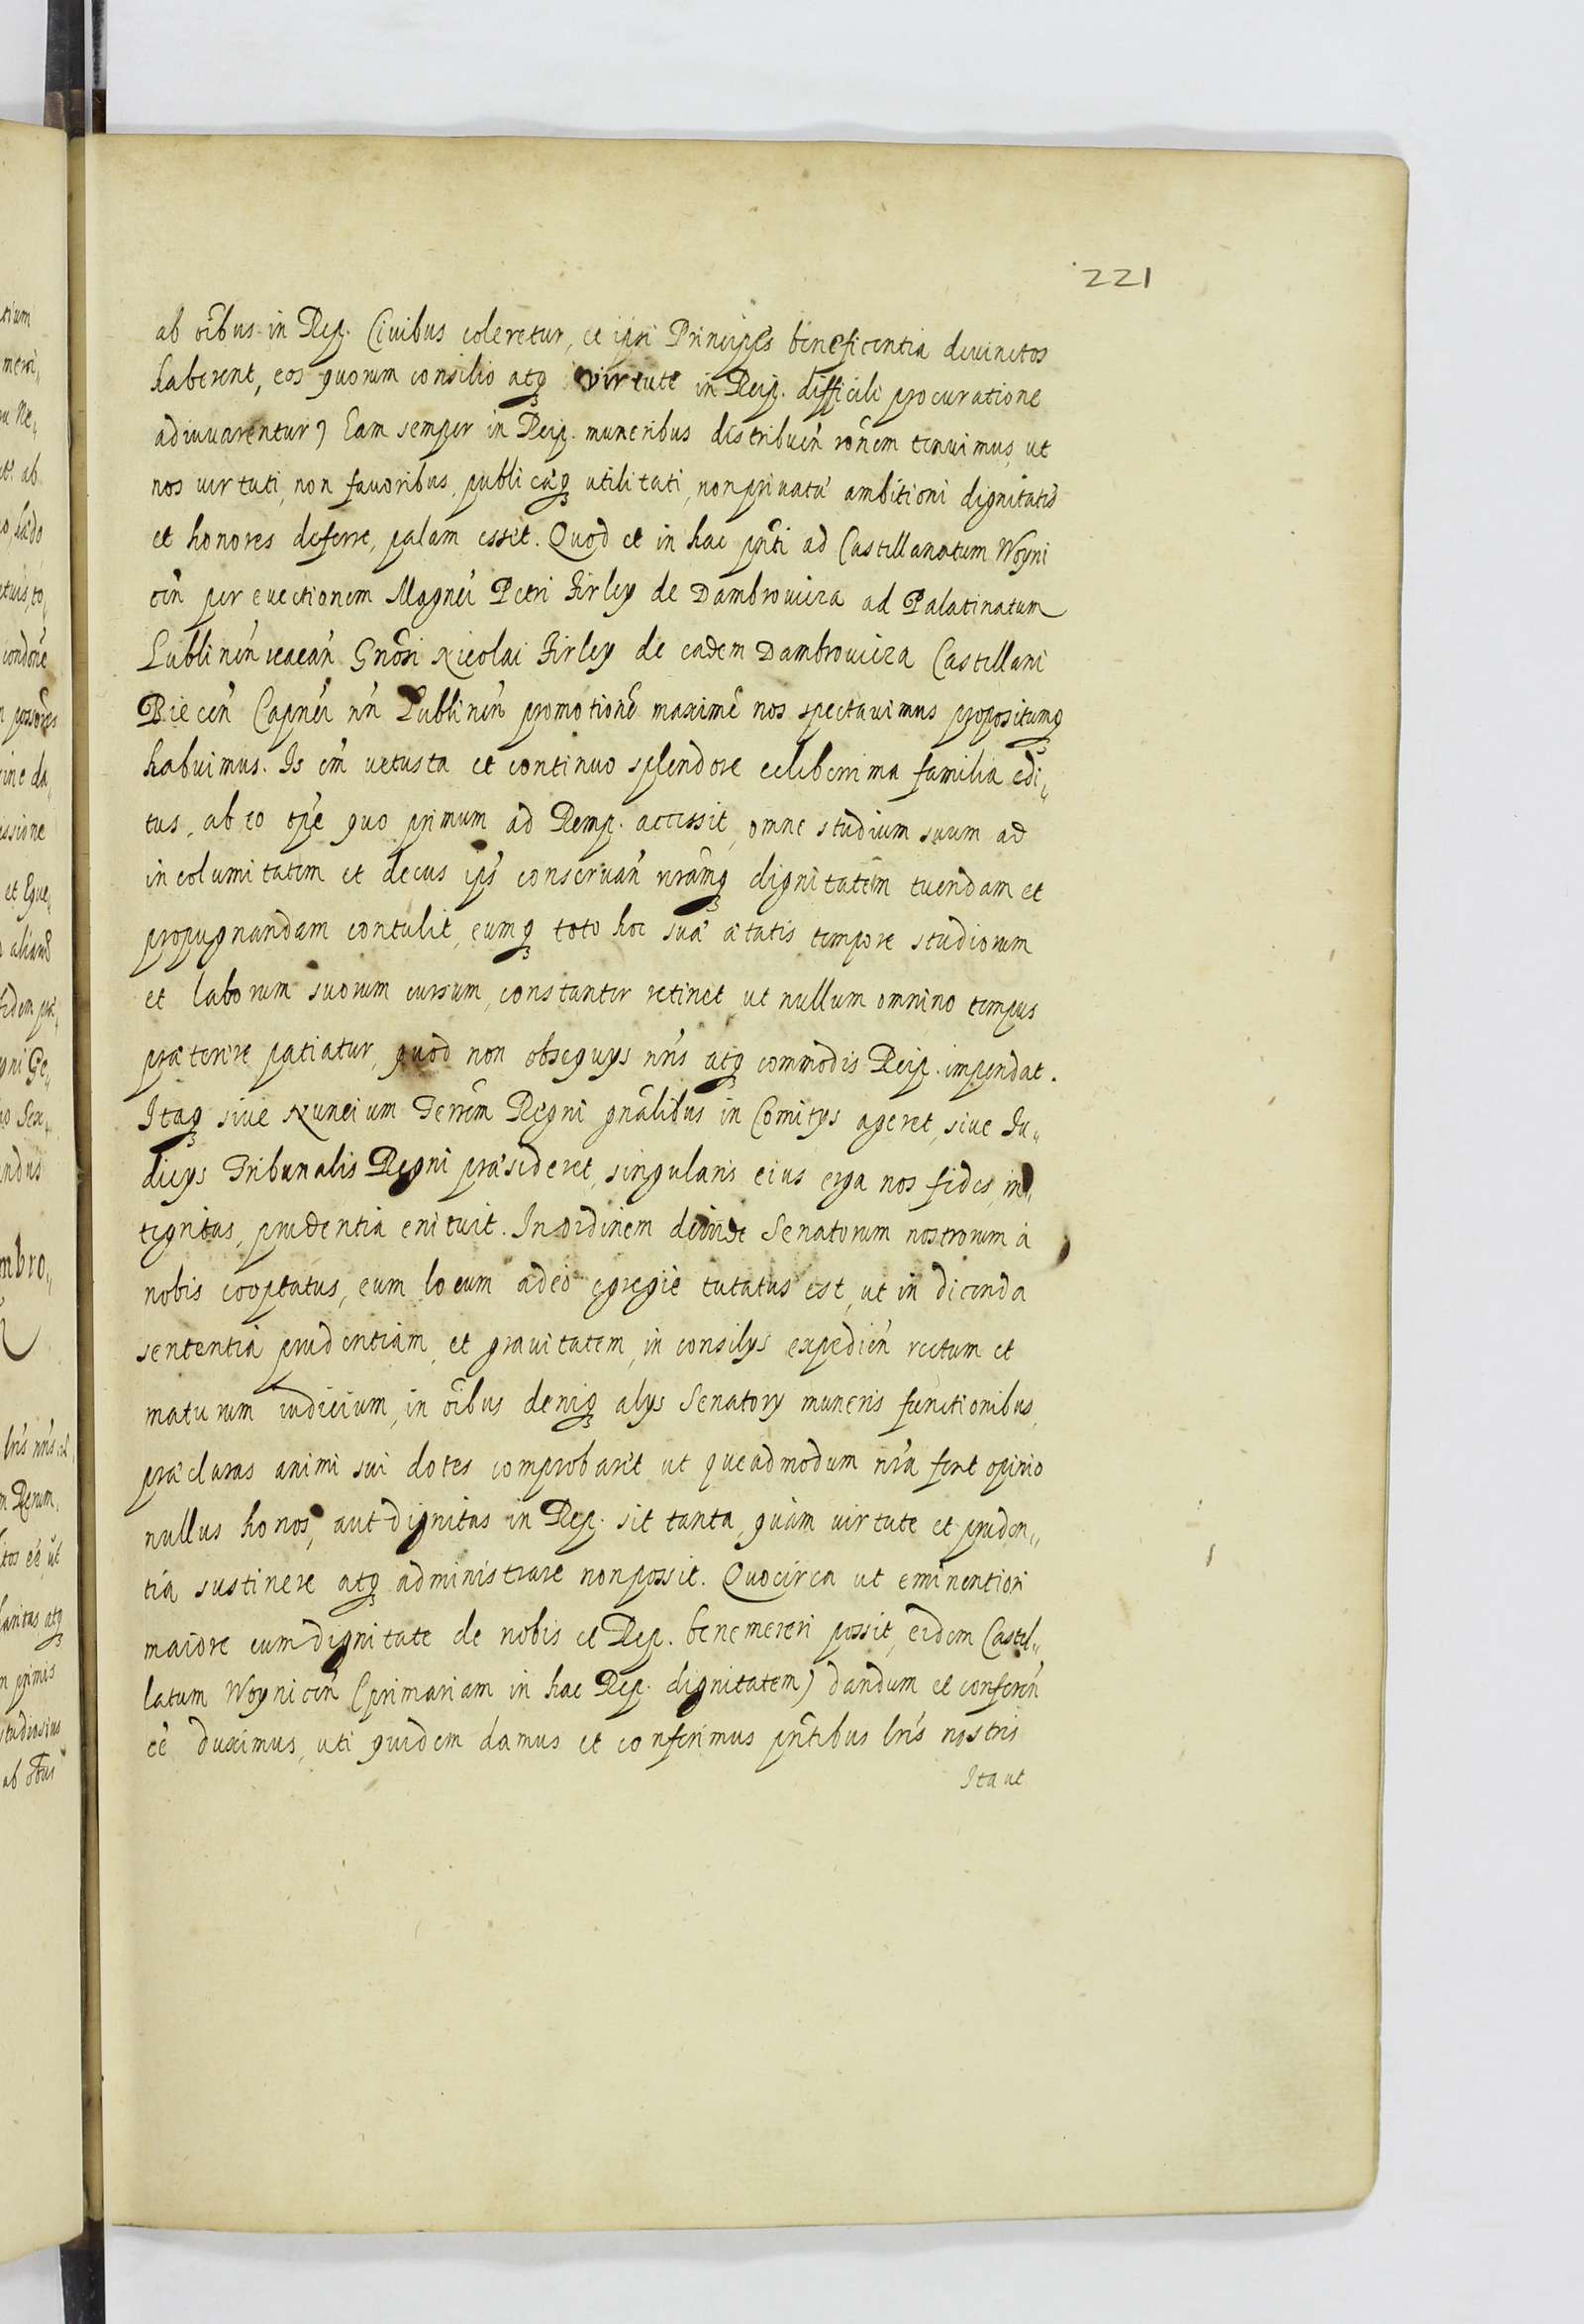 221
ab oĩbus in Rep. Ciuibus coleretur, et ipsi Principes beneficentia deuinctos
haberent, eos quorum consilio atq virtute in Reip. difficili procuratione
adiuuarentur) Eam semper in Reip. muneribus distribueñ roñem tenuimus, ut
nos uirtuti, non fauoribus, publicæq utilitati, non priuatæ ambitioni dignitates
et honores deferre, palam esset. Quod et in hac pñti ad Castellanatum Woyni
ceñ per euectionem Magñci Petri Firley de Dambrouicza ad Palatinatum
Lublineñ uacañ Gñosi Nicolai Firley de eadem Dambrouicza Castellani
Bieceñ Capñei ñri Lublineñ promotione maxime nos spectauimus propositumq
habuimus. Is eñi uetusta et continuo splendore celeberrima familia edi„
tus, ab eo tpe quo primum ad Remp. accessit, omne studium suum ad
incolumitatem et decus ips conseruañ nramq dignitatem tuendam et
propugnandam contulit, eumq toto hoc suæ ætatis tempore studiorum
et laborum suorum cursum, constanter retinet, ut nullum omnino tempus
præterire patiatur, quod non obsequys nr̃is atq commodis Reip. impendat.
Itaq siue Nuncium Terrem̃ Regni gñalibus in Comitys ageret, siue Iu„
dicys Tribunalis Regni præsideret, singularis eius erga nos fides, in„
tegritas, prudentia enituit. In ordinem deinde Senatorum nostrorum à
nobis cooptatus, eum locum adeò egregie tutatus est, ut in dicenda
sententia prudentiam, et grauitatem, in consilys expedieñ rectum et
maturum iudicium, in oĩbus deniq alys Senatory muneris functionibus,
præclaras animi sui dotes comprobarit ut queadmodum nr̃a fert opinio
nullus honos, aut dignitas in Rep. sit tanta, quàm uirtute et pruden„
tia sustinere atq administrare non possit. Quocirca ut eminentiori
maiore cum dignitate de nobis et Rep. benemereri possit, eidem Castel„
latum Woyniceñ (primariam in hac Rep. dignitatem) dandum et confereñ
eẽ duximus, uti quidem damus et conferimus pñtibus lr̃is nostris
Ita ut